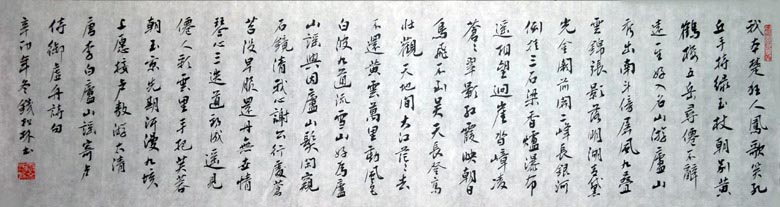 我本楚狂人鳳歌笑孔
丘手持绿玉杖朝别黄
鶴楼五岳尋僊不辭
遠一生好入名山游廬山
秀出南斗傍屏風九叠
雲錦張影落明湖青黛
光金闕前開二峰長銀河
倒挂三石梁香爐瀑布
遥相望迴崖沓嶂凌
蒼蒼翠影红霞映朝日
鳥飛不到吴天長登高
壯觀天地間大江茫茫去
不還黄雲萬里動風色
白波九道流雪山好爲廬
山謡興因廬山發闲窥
石鏡清我心謝公行處蒼
苔没早服還丹無世情
琴心三迭道初成遥見
僊人彩雲里手把芙蓉
朝玉京先期汗漫九垓
上愿接卢敖游太清
唐李白廬山謡寄卢
侍御虚舟詩句
辛卯年冬錢书